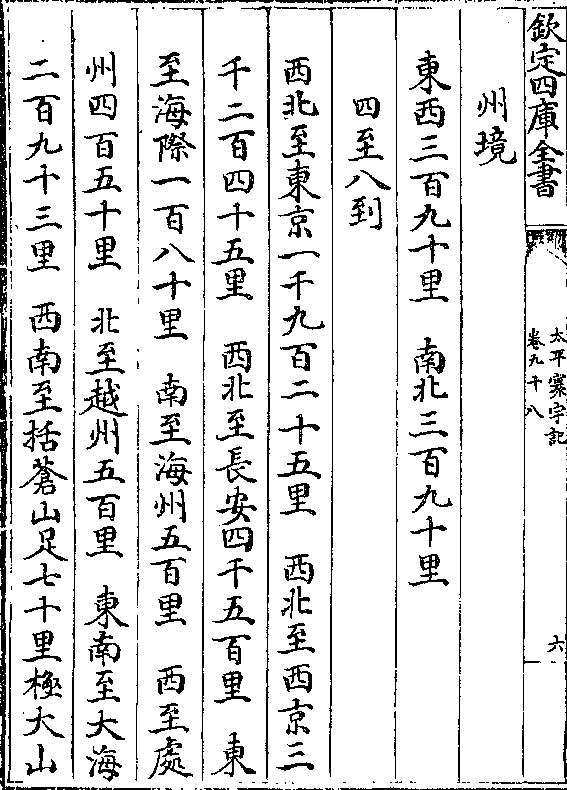 欽定四庫全書
太平寰宇記
卷九十八
六
州境
東西三百九十里　南北三百九十里
四至八到
西北至東京一千九百二十五里　西北至西京三
千二百四十五里　西北至長安四千五百里　東
至海際一百八十里　南至海州五百里　西至處
州四百五十里　北至越州五百里　東南至大海
二百九十三里　西南至括蒼山足七十里極大山